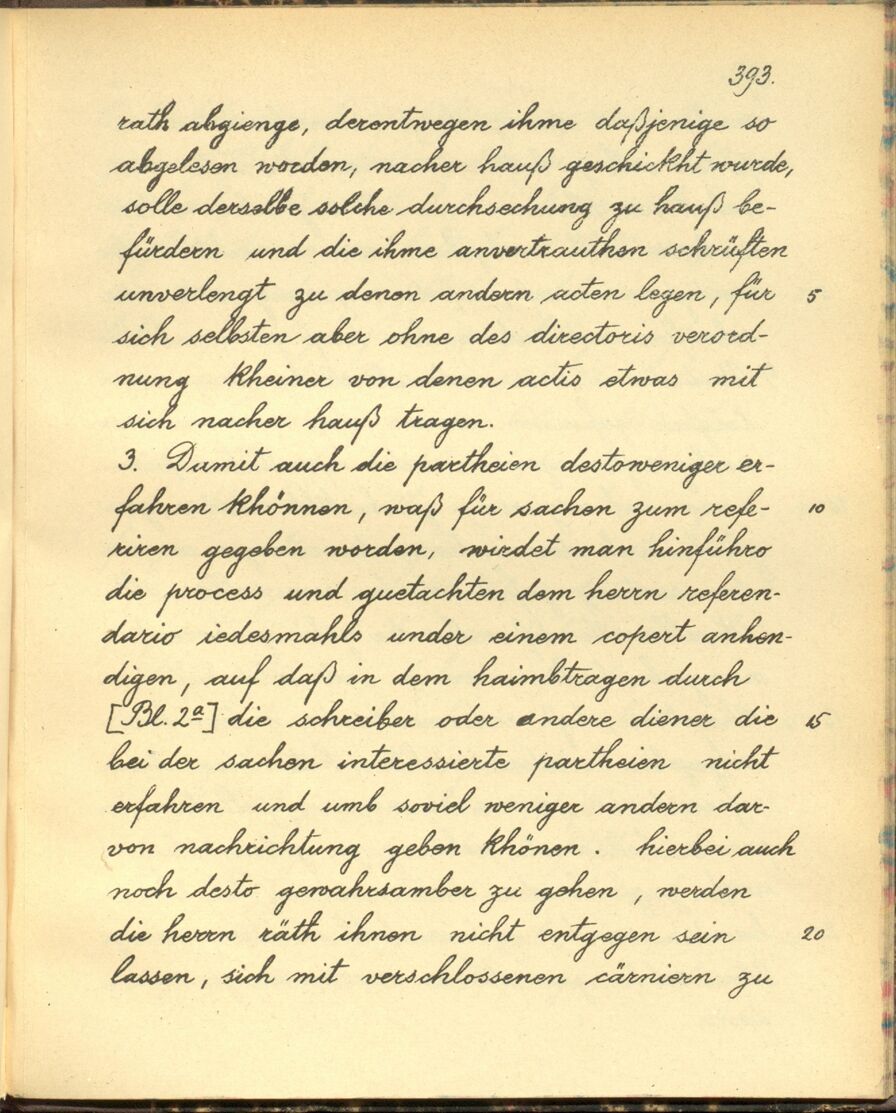 393.
rath abgienge, derentwegen ihme daßjenige so
abgelesen worden, nacher hauß geschickht wurde,
solle derselbe solche durchsechung zu hauß be-
fürdern und die ihme anvertrauthen schrüften
unverlengt zu denen andern acten legen, für 5
sich selbsten aber ohne des directoris verord-
nung kheiner von denen actis etwas mit
sich nacher hauß tragen.
3. Dumit auch die partheien destoweniger er-
fahren khönnen, waß für sachen zum refe- 10
riren gegeben worden, wirdet man hinführo
die process und guetachten dem herrn referen-
dario iedesmahls under einem copert anhen-
digen, auf daß in dem haimbtragen durch
[Bl. 2a] die schreiber oder andere diener die 15
bei der sachen interessierte partheien nicht
erfahren und umb soviel weniger andern dar-
von nachrichtung geben khönen. hierbei auch
noch desto gewahrsamber zu gehen, werden
die herrn räth ihnen nicht entgegen sein 20
lassen, sich mit verschlossenen cärniern zu